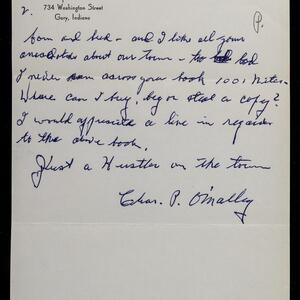 734 Washington Street
Gary, Indiana
2.
P.
born and bred – and I like all your
anecdotes about our town – too bad
I never ran across your book 1001 Nites –
Where can I buy, beg or steal a copy?
I would appreciate a line in regards
to the above book.
Just a Hustler on the town
Chas. P. O'Malley